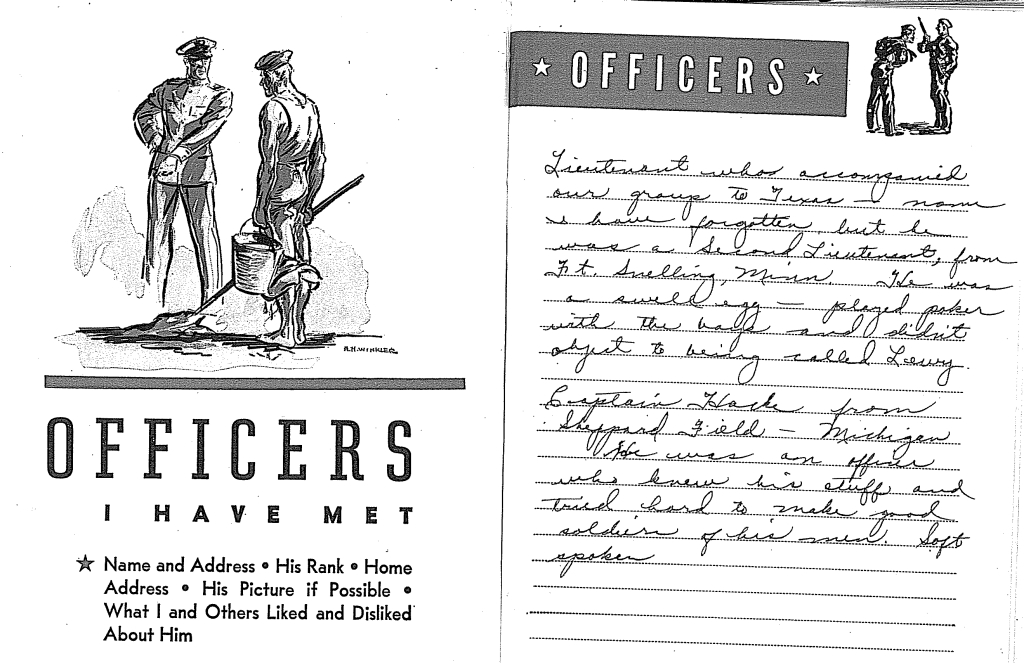 R.H. WINKLER
OFFICERS
I HAVE MET
★ Name and Address • His Rank • Home
Address • His Picture if Possible •
What I and Others Liked and Disliked
About Him
★ OFFICERS ★
Lieutenant who accompanied
our group to Texas — name
I have forgotten but he
was a Second Lieutenant, from
Ft. Snelling, Minn. He was
a swell egg — played poker
with the boys and didn't
object to being called Lewy.
Captain from
Sheppard Field — Michigan
He was an officer
who knew his stuff and
tried hard to make good
soldiers of his men. Soft
spoken